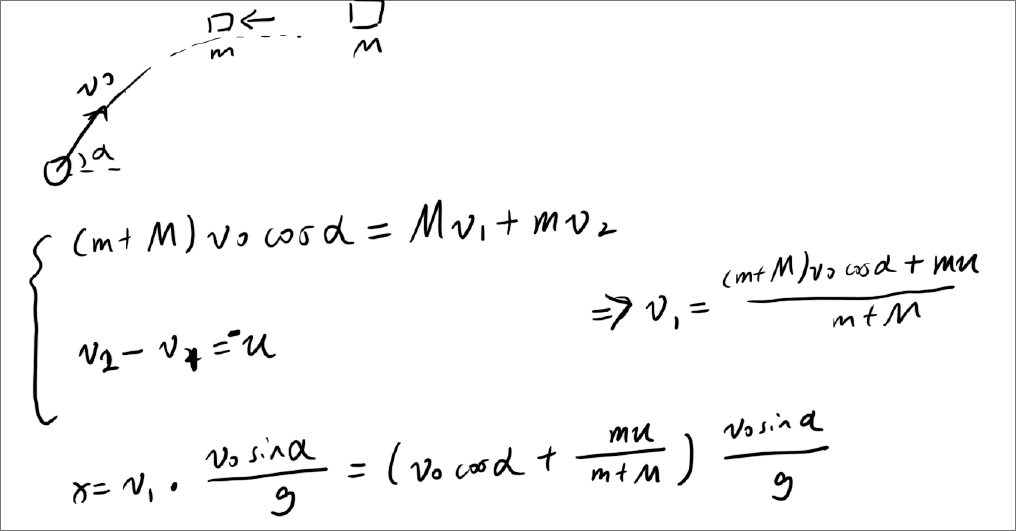 m ← M
v₀
α
(m+M) v₀ cos α = M v₁ + m v₂
⇒ v₁ = \frac{(m+M) v₀ cos α + mu}{m+M}
v₂ - v₁ = -u
x = v₁ · \frac{v₀ sin α}{g} = (v₀ cos α + \frac{mu}{m+M}) \frac{v₀ sin α}{g}